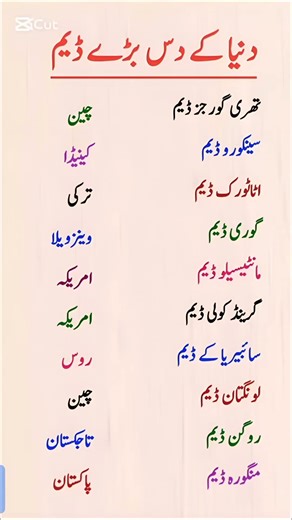 Cut
دنیا کے دس بڑے ڈیم
تھری گورجز ڈیم چین
سینکورو ڈیم کینیڈا
اتاترک ڈیم ترکی
گوری ڈیم وینزویلا
مانٹیسیلو ڈیم امریکہ
گرینڈ کولی ڈیم امریکہ
سائبیریا کے ڈیم روس
لونگتان ڈیم چین
روگن ڈیم تاجکستان
منگورہ ڈیم پاکستان